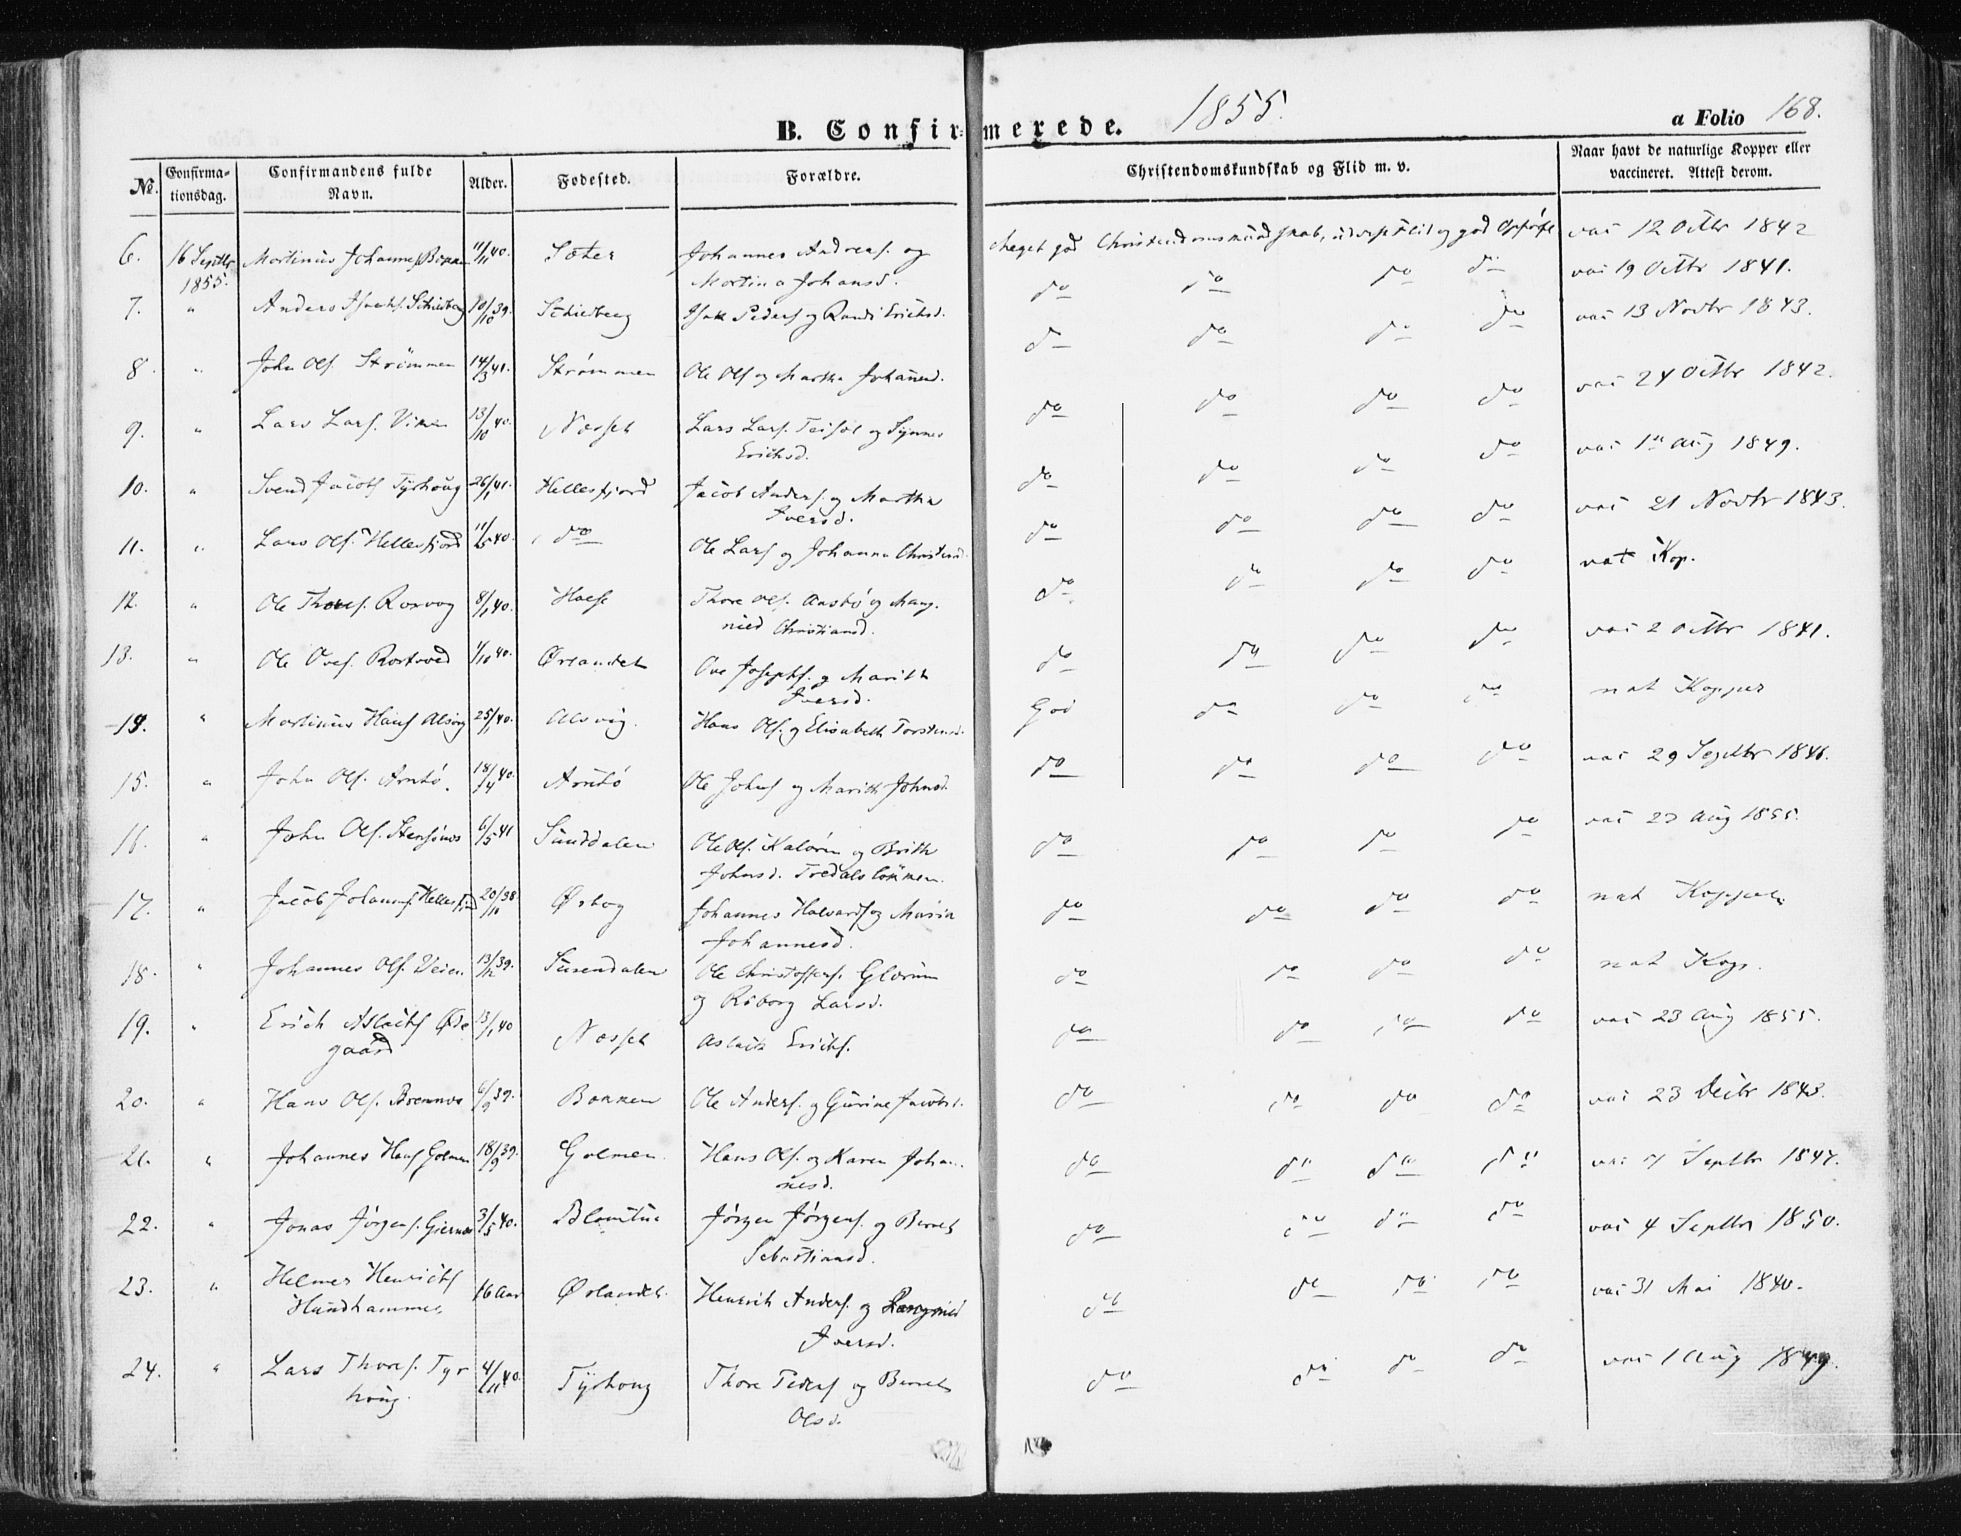 B. Confirmerede. 1855. a Folio 168.
No. Confirmationsdag. Confirmandens fulde Navn. Alder. Fødested. Forældre. Christendomskundskab og Flid m. v. Naar havt de naturlige Kopper eller vaccineret. Attest derom.
6. 16 Septbr 1855. Martinus Johannes. Boxen 11/11 40. Sæter Johannes Andreas. og Martina Johansd. Meget god Christendomskundskab, udvist Flid og god Opførsel vac 12 Octbr 1842
7. " Anders Isachs. Schieberg 10/10 39. Schieberg Isak Peders. og Randi Erichsd. do do do do vac 19 Octbr 1841.
8. " John Ols. Strømmen 14/3 41. Strømmen Ole Ols. og Martha Johansd. do do do do vac 13 Novbr 1843.
9. " Lars Lars. 13/10 40. Næsset Lars Lars. og Synnev Erichsd. do do do do vac 24 Octbr 1842.
10. " Svend Jacobs. Tyrhoug 26/1 41. Hellesfjord Jacob Anders. og Martha Iversd. do do do do vac 1ste Aug 1849.
11. " Lars Ols. Hellesfjord 11/5 40. do Ole Lars. og Johanna Christensd. do do do do vac 21 Novbr 1843.
12. " Ole Thores. Rosvog 8/1 40. Halse Thore Ols. og Magnild Christiansd. do do do do nat Kop.
13. " Ole Oves. 1/10 40. Ørlandet Ove Josephs. og Marith Iversd. do do do do vac 2 Octbr 1841.
14. " Martinus Hans. Alsvig 25/1 40. Alsvig. Hans Ols. og Elisabeth Torstensd. God do do do nat Kopper
15. " John Ols. Arntø. 18/4 40. Arntø Ole Johns. og Marith Johnsd. do do do do vac 29 Septbr 1846.
16. " John Ols. Stensønes 6/5 41 Sunddalen Ole Ols. og Brith Johnsd. do do do do vac 23 Aug 1855.
17. " Jacob Johannes. Hellesfjord 20/10 38. Johannes Halvards. og Maria Johannesd. do do do do nat Kopper.
18. " Johannes Ols. Veien 13/12 39. Surendalen Ole Christoffers. Glærum og Larsd. do do do do nat Kop.
19. " Erich Aslachs. Ødegaard 13/1 40 Næsset Aslach Erichs. do do do do vac 23 Aug 1855.
20. " Hans Ols. Brennes 6/9 39. Boxen Ole Anders. og Gurine Jacobsd. do do do do vac 23 Decbr 1843.
21. " Johannes Hans. Golmen 18/9 39. Golmen Hans Ols. og Karen Johannesd. do do do do vac 7 Septbr 1847.
22. " Jonas Jørgens. 3/5 40. Jørgen Jørgens. og Beret Sebastiansd. do do do do vac 4 Septbr 1850.
23. " Helmer Henrichs. Hundhammer 16 Aar Ørlandet. Henrich Anders. og Iversd. do do do do vac 31 Mai 1840.
24. " Lars Thores. Tyrhoug. 4/11 40. Tyrhoug Thore Peders. og Beret Olsd. do do do do vac 1 Aug 1849.